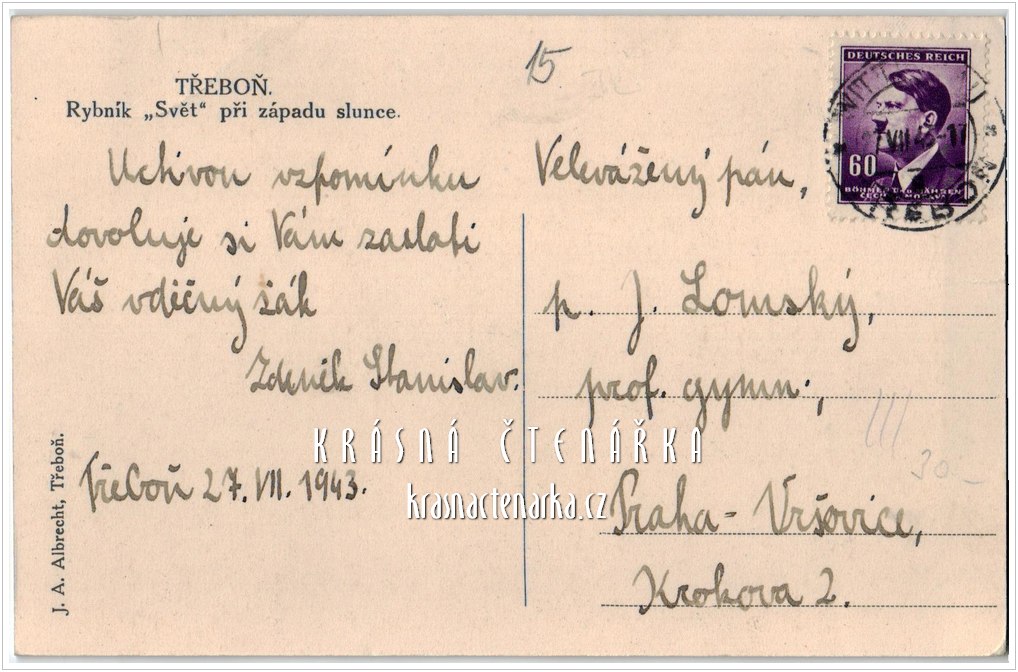 15
TŘEBOŇ.
Rybník „Svět“ při západu slunce.
Uctivou vzpomínku
dovoluje si Vám zaslati
Váš vděčný žák
Zdeněk Stanislav.
Třeboň 27. VII. 1943.
J. A. Albrecht, Třeboň.
DEUTSCHES REICH
60
BÖHMEN UND MÄHREN
VII 43-17
TŘEBOŇ
Velevážený pán,
p. J. Lomský,
prof. gymn.,
Praha - Vršovice,
Krokova 2.
30-
KRÁSNÁ ČTENÁŘKA
krasnactenarka.cz